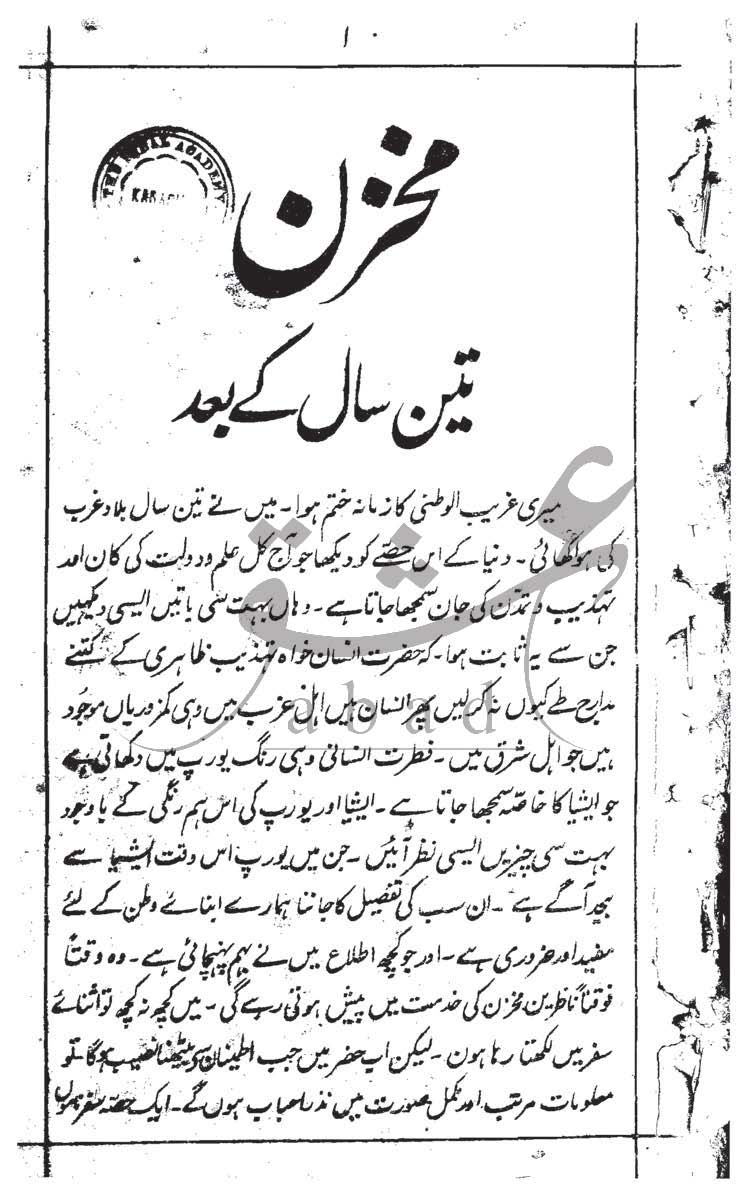 ۱۰
THE IQBAL ACADEMY
KARACHI
مخزن
تین سال کے بعد
میری غریب الوطنی کا زمانہ ختم ہوا۔ میں نے تین سال بلاد غرب
کی ہوا کھائی۔ دنیا کے اس حصّے کو دیکھا جو آج کل علم و دولت کی کان اور
تہذیب و تمدّن کی جان سمجھا جاتا ہے۔ وہاں بہت سی باتیں ایسی دیکھیں
جن سے یہ ثابت ہوا۔ کہ حضرت انسان خواہ تہذیب ظاہری کے کتنے
مدارج طے کیوں نہ کر لیں پھر انسان ہیں اہل غرب میں وہی کمزوریاں موجُود
ہیں جو اہل شرق میں۔ فطرت انسانی وہی رنگ یورپ میں دکھاتی ہے
جو ایشیا کا خاصّہ سمجھا جاتا ہے۔ ایشیا اور یورپ کی اس ہم رنگی کے باوجود
بہت سی چیزیں ایسی نظر آئیں۔ جن میں یورپ اس وقت ایشیا سے
بیحد آگے ہے۔ ان سب کی تفصیل کا جاننا ہمارے ابنائے وطن کے لئے
مفید اور ضروری ہے۔ اور جو کچھ اطلاع میں نے بہم پہنچائی ہے۔ وہ وقتاً
فوقتاً ناظرین مخزن کی خدمت میں پیش ہوتی رہے گی۔ میں کچھ نہ کچھ تو اثنائے
سفر میں لکھتا رہا ہون۔ لیکن اب حضر میں جب اطینان سے بیٹھنا نصیب ہوگا۔ تو
معلومات مرتب اور مکمل صورت میں نذر احباب ہوں گے۔ ایک حصّہ سفر
عشق
abad